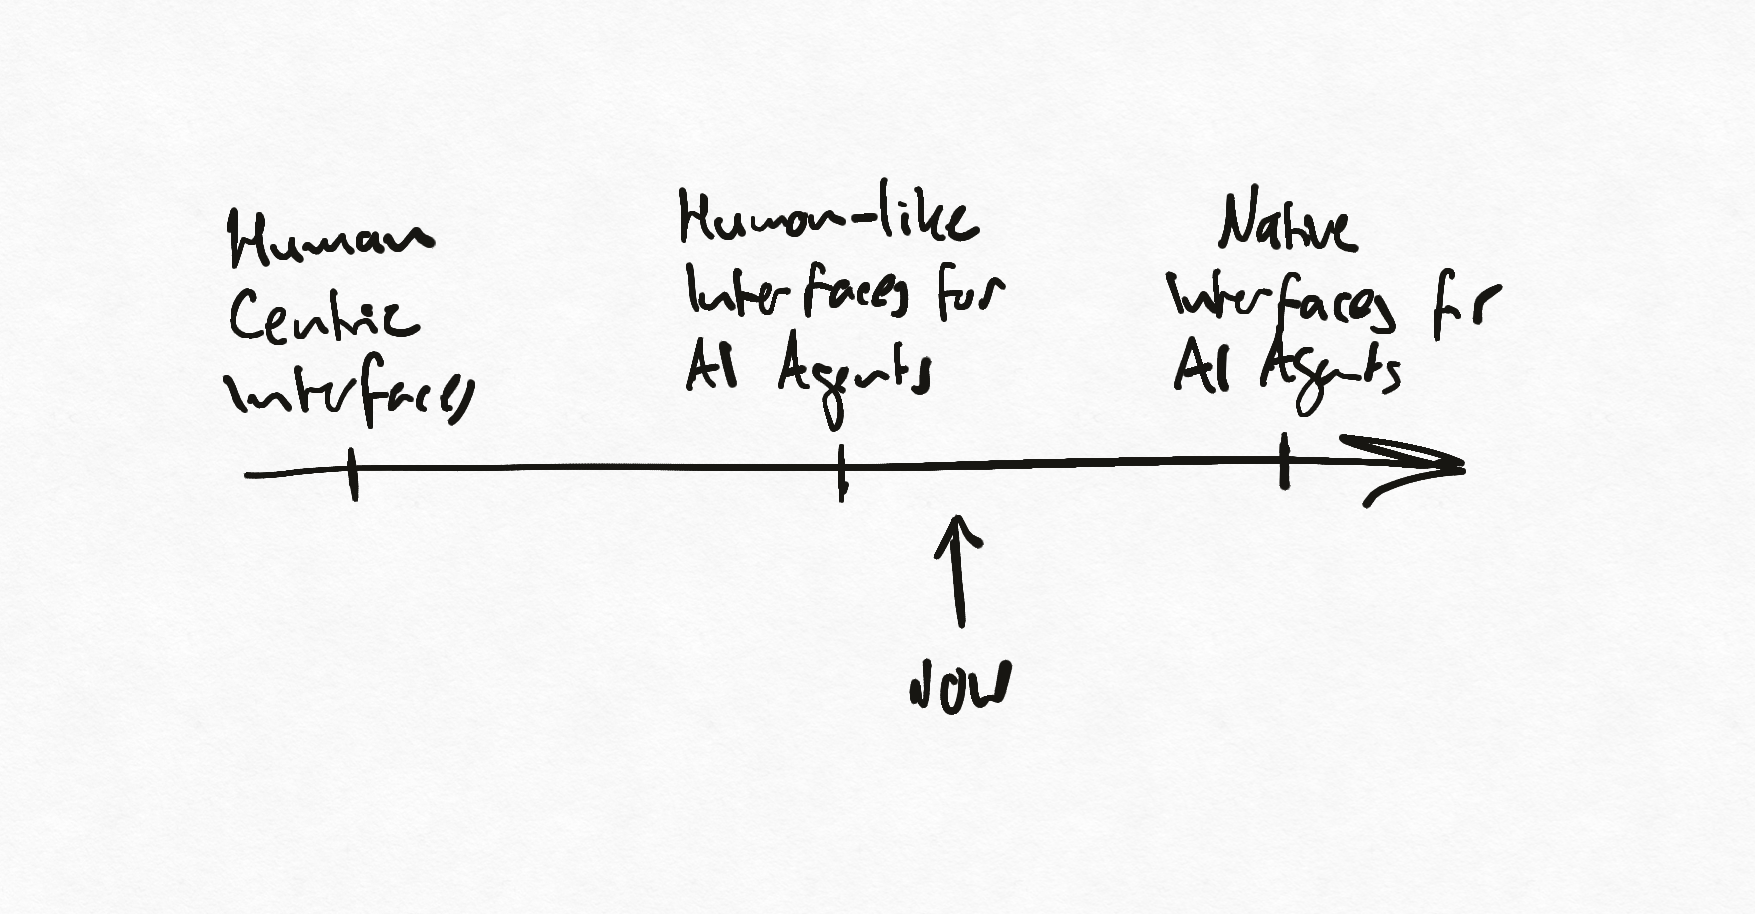 Human
Centric
Interfaces
Human-like
Interfaces for
AI Agents
Native
Interfaces for
AI Agents
Now